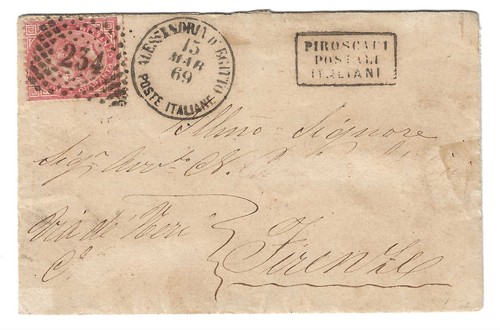 234
ALESSANDRIA D'EGITTO
15
MAR
69
POSTE ITALIANE
PIROSCAFI
POSTALI
ITALIANI
Illmo Signore
Sigr
Via de' Neri
Firenze